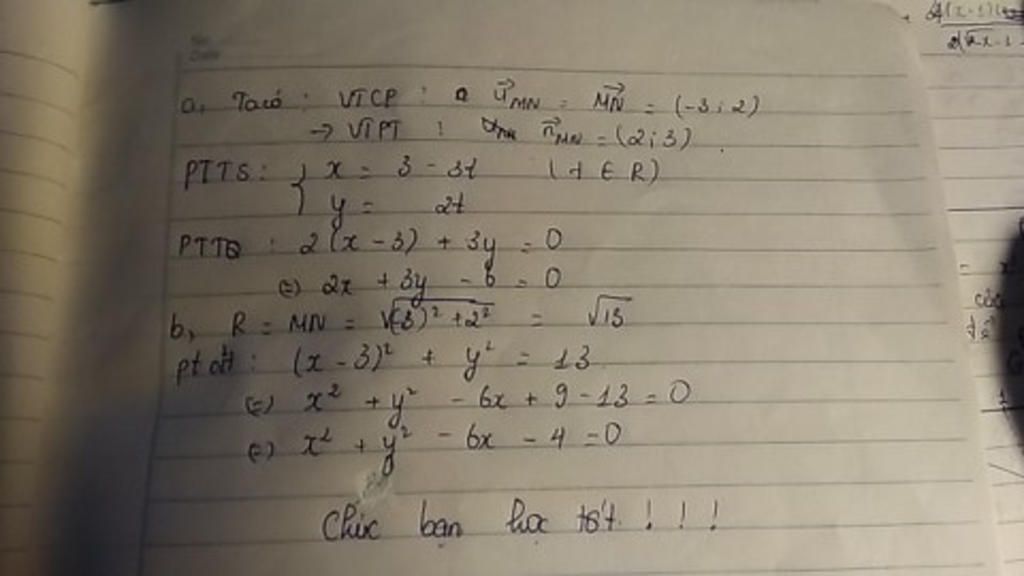 No.
Date
a, Ta có : VTCP : u⃗MN = MN⃗ = (-3 ; 2)
→ VTPT : n⃗MN = (2 ; 3)
PTTS : { x = 3 - 3t (t ∈ R)
y = 2t
PTTQ : 2(x - 3) + 3y = 0
(=) 2x + 3y - 6 = 0
b, R = MN = √(-3)² + 2² = √13
pt đtt : (x - 3)² + y² = 13
(=) x² + y² - 6x + 9 - 13 = 0
(=) x² + y² - 6x - 4 = 0
Chúc bạn học tốt ! ! !